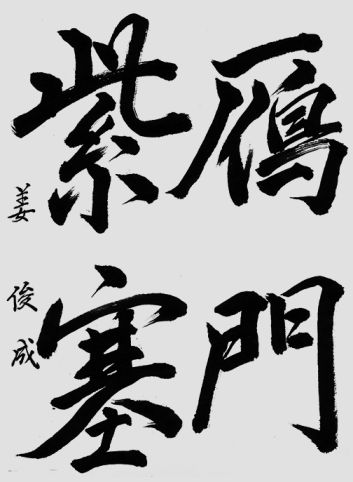 鴈門
紫塞
姜俊成